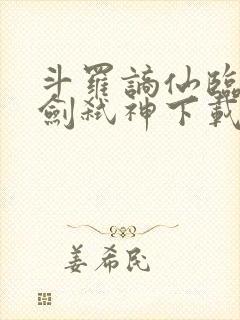 斗羅謫仙臨
劍弒神下載
姜希民